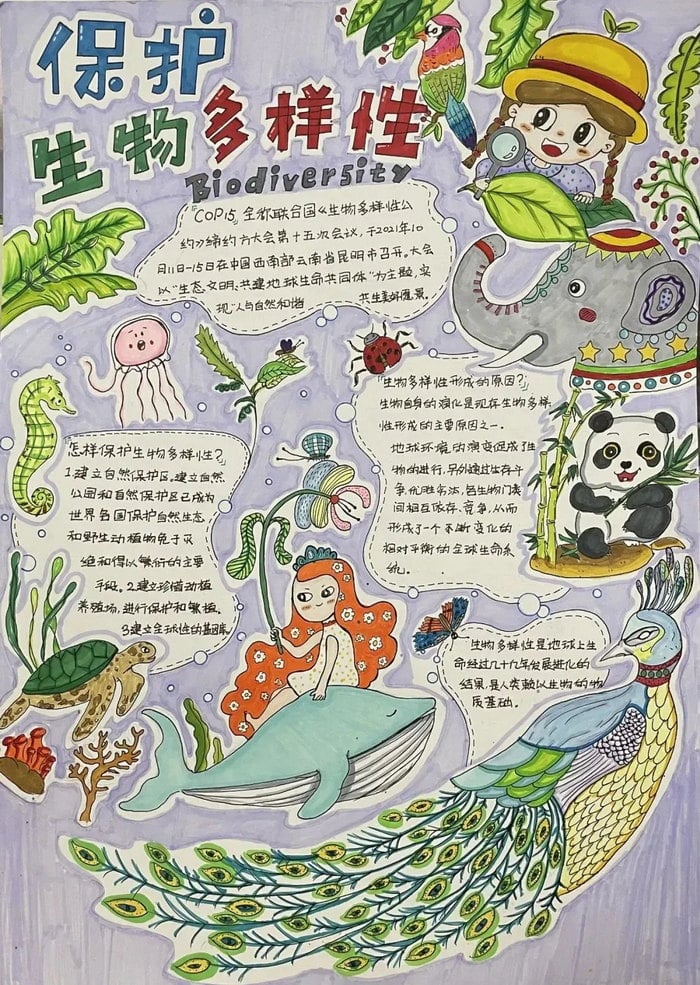 保护
生物多样性
Biodiversity
「COP15」全称联合国《生物多样性公
约》缔约方大会第十五次会议,于2021年10
月11日-15日在中国西南部云南省昆明市召开。大会
以“生态文明:共建地球生命共同体”为主题,实
现“人与自然和谐 共生美好愿景。
「生物多样性形成的原因?」
生物自身的演化是现存生物多样
性形成的主要原因之一.
地球环境的演变促成了生
物的进行,另外通过生存斗
争,优胜劣汰,各生物门类
间相互依存、竞争,从而
形成了一个不断变化的
相对平衡的全球生命系
统。
「怎样保护生物多样性?」
1.建立自然保护区,建立自然
公园和自然保护区已成为
世界各国保护自然生态
和野生动植物免于灭
绝和得以繁衍的主要
手段。2.建立珍惜动植
养殖场,进行保护和繁植。
3.建立全球性的基因库。
生物多样性是地球上生
命经过几十九年发展进化的
结果,是人类赖以生物的物
质基础。